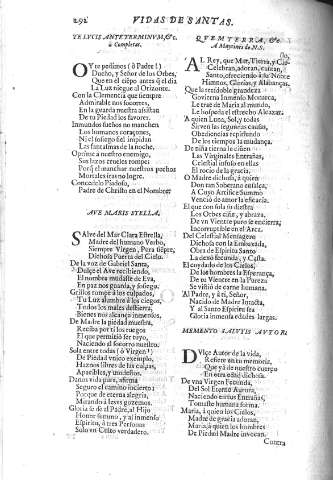 292 VIDAS DE SANTAS.
TE LVCIS ANTE TERMINVM, &c.
à Completas.
OYe pedimos (ò Padre!)
Dueño, y Señor de los Orbes,
Que en el tiẽpo antes q̃ el dia
La Luz niegue al Orizonte.
Con la Clemencia que siempre
Admirable nos socorres,
En la guarda nuestra assistan
De tu Piedad los favores.
Inmundos sueños no manchen
Los humanos coraçones,
Ni el sosiego del
Las fantasmas de la noche.
Oprime a nuestro enemigo,
Sus lazos crueles rompe:
Porq̃ el manchar nuestros pechos
Mortales ansias no logre.
Concedelo Piadoso,
Padre de Christo en el Nombre
AVE MARIS STELLA.
SAlve del Mar Clara Estrella,
Madre del humano Verbo,
Siempre Virgen, Pura siẽpre,
Dichosa Puerta del Cielo.
De la voz de Gabriel Santa,
Dulçe el Ave recibiendo,
El nombre mudaste de Eva,
En paz nos guarda, y sosiego.
Grillos rompe à los culpados,
Tu Luz alumbre à los ciegos,
Todos los males destierra,
Bienes nos alcança inmensos.
De Madre la piedad muestra,
Reciba por ti los ruegos
El que permitiò ser tuyo,
Naciendo al socorro nuestro.
Sola entre todas (ò Virgen!)
De Piedad vnico exemplo,
Haznos libres de las culpas,
Apacibles, y modestos.
Danos vida pura, afirma
Seguro el camino incierto;
Porque de eterna alegria,
Mirando à Iesvs gozemos.
Gloria se dè al Padre, al Hijo
Honor summo, y al inmenso
Espiritu, à tres Personas
Solo vn Culto verdadero.
QVEM TERRA, &c.
A Maytines de N.S.
AL Rey, que Mar, Tierra, y Cielo
Celebran, adoran, cantan,
Santo, ofreciendo à su Nombre
Himnos, Glorias, y Alabanças:
Que la
Govierno Inmenso Monarca,
Le trae de Maria al mundo,
Le hospeda el estrecho Alcazar.
A quien Luna, Sol, y todas
Sirven las segundas causas,
Obediencias repitiendo
De los tiempos la mudança.
De niña tierna le ciñen
Las Virginales Entrañas,
Celestial infuso en ellas
El rocio de la gracia.
O Madre dichosa, à quien
Don tan Soberano ensalça,
A Cuyo Artifice Summo
Venciò de amor la eficacia.
El que con sola su diestra
Los Orbes ciñe, y abraza,
De vn Vientre puro se encierra,
Incorruptible en el Arca.
Del Celestial Mensagero
Dichosa con la Embaxada,
Obra de Espiritu Santo
La dexò fecunda, y Casta.
El cuydado de los Cielos,
De los hombres la Esperança,
De tu Vientre en la Pureza
Se vistiò de carne humana.
Al Padre, y à ti, Señor,
Nacido de Madre Intacta,
Y al Santo Espiritu sea
Gloria inmensa edades largas.
MEMENTO SALVTIS AVTOR:
DVlçe Autor de la vida,
Refiere en tu memoria,
Que yà de nuestro cuerpo
En otra edad dichosa.
De vna Virgen Fecunda,
Del Sol Eterno Aurora,
Naciendo en sus Entrañas,
Tomaste humana forma.
Maria, à quien los Cielos,
Madre de gracia adoran,
Maria à quien los hombres
De Piedad Madre invocan.
Contra